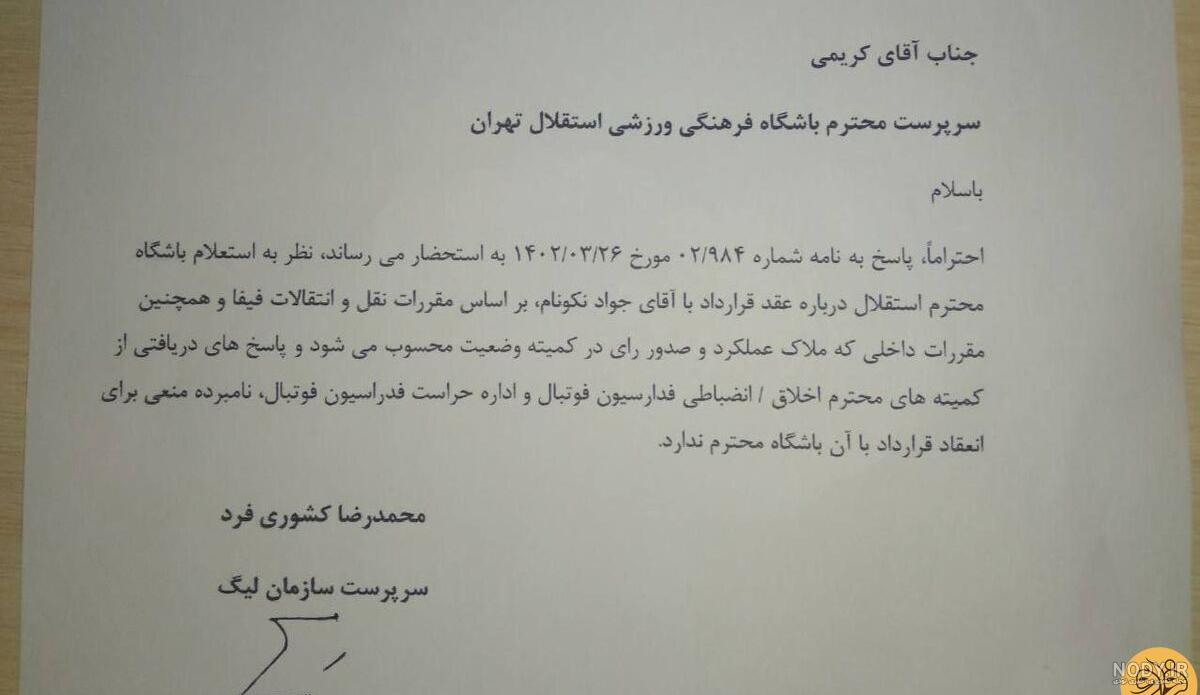 جناب آقای کریمی
سرپرست محترم باشگاه فرهنگی ورزشی استقلال تهران
باسلام
احتراماً، پاسخ به نامه شماره ۰۲/۹۸۴ مورخ ۱۴۰۲/۰۳/۲۶ به استحضار می رساند، نظر به استعلام باشگاه
محترم استقلال درباره عقد قرارداد با آقای جواد نکونام، بر اساس مقررات نقل و انتقالات فیفا و همچنین
مقررات داخلی که ملاک عملکرد و صدور رای در کمیته وضعیت محسوب می شود و پاسخ های دریافتی از
کمیته های محترم اخلاق / انضباطی فدارسیون فوتبال و اداره حراست فدراسیون فوتبال، نامبرده منعی برای
انعقاد قرارداد با آن باشگاه محترم ندارد.
محمدرضا کشوری فرد
سرپرست سازمان لیگ
NODY.IR